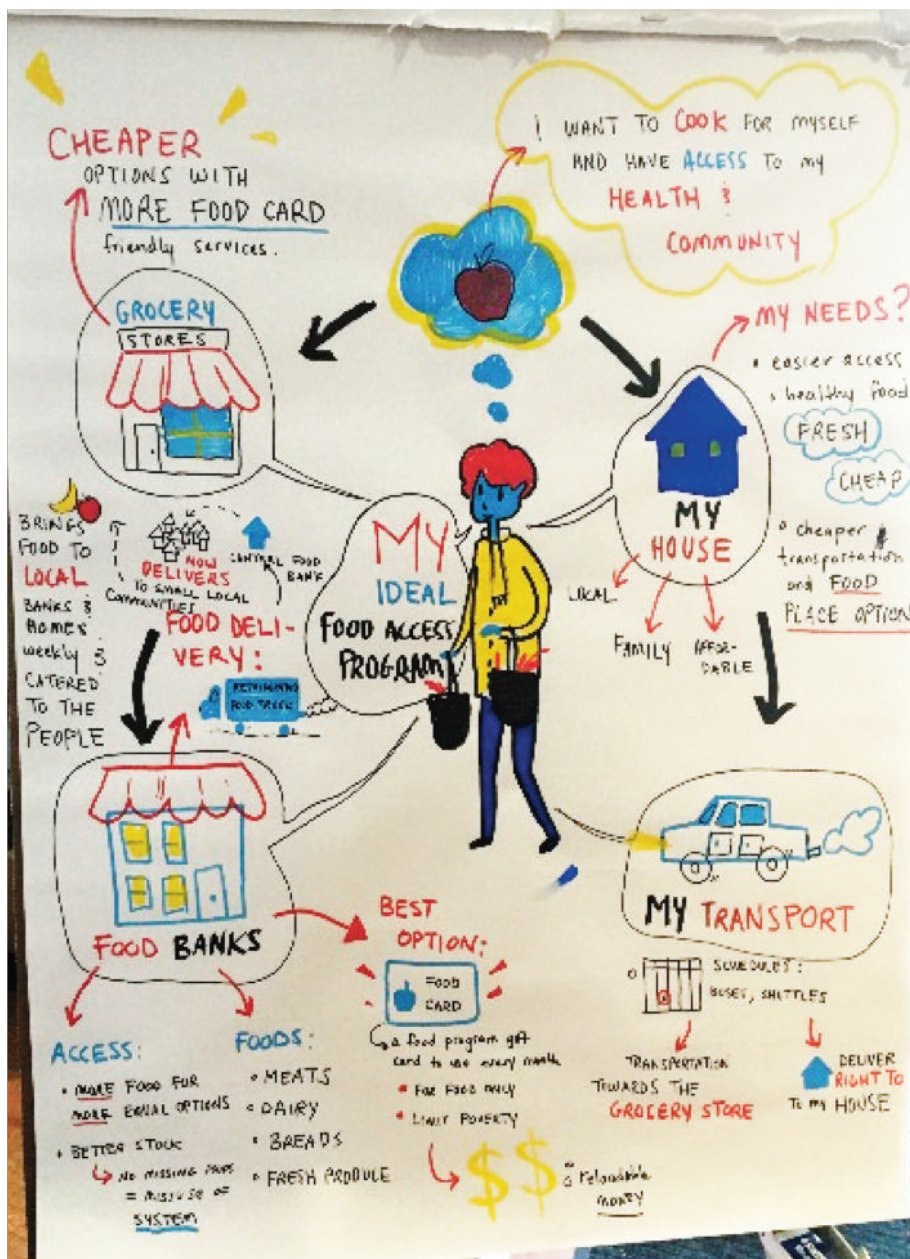 CHEAPER
OPTIONS WITH
MORE FOOD CARD
friendly services.
I WANT TO COOK FOR MYSELF
AND HAVE ACCESS TO my
HEALTH &
COMMUNITY
GROCERY
STORES
MY NEEDS?
• easier access
• healthy food
FRESH
CHEAP
• cheaper
transportation
and FOOD
PLACE OPTION
MY
HOUSE
LOCAL
FAMILY
AFFOR-
DABLE
MY
IDEAL
FOOD ACCESS
PROGRAM
BRINGS
FOOD TO
LOCAL
BANKS &
HOMES
weekly &
CATERED
TO THE
PEOPLE
NOW
DELIVERS
TO SMALL LOCAL
COMMUNITIES
CENTRAL FOOD
BANK
FOOD DELI-
VERY:
FOOD TRUCK
FOOD BANKS
MY TRANSPORT
BEST
OPTION:
FOOD
CARD
a food program gift
card to use every month
• FOR FOOD ONLY
• LIMIT POVERTY
$$
reloadable
MONEY
ACCESS:
• MORE FOOD FOR
MORE EQUAL OPTIONS
• BETTER STOCK
NO MISSING
= MISUSE OF
SYSTEM
FOODS:
• MEATS
• DAIRY
• BREADS
• FRESH PRODUCE
SCHEDULES:
BUSES, SHUTTLES
TRANSPORTATION
TOWARDS THE
GROCERY STORE
DELIVER
RIGHT TO
TO my HOUSE